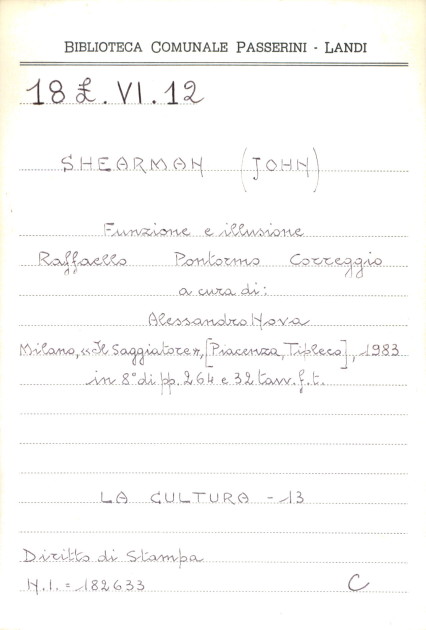 BIBLIOTECA COMUNALE PASSERINI - LANDI
18 £. VI. 12
SHEARMAN (JOHN)
Funzione e illusione
Raffaello Pontormo Correggio
a cura di:
Alessandro Nova
Milano, «Il Saggiatore», [Piacenza, Tipleco], 1983
in 8° di pp. 264 e 32 tavv. f. t.
LA CULTURA - 13
Diritto di Stampa
N.I. = 182633 C